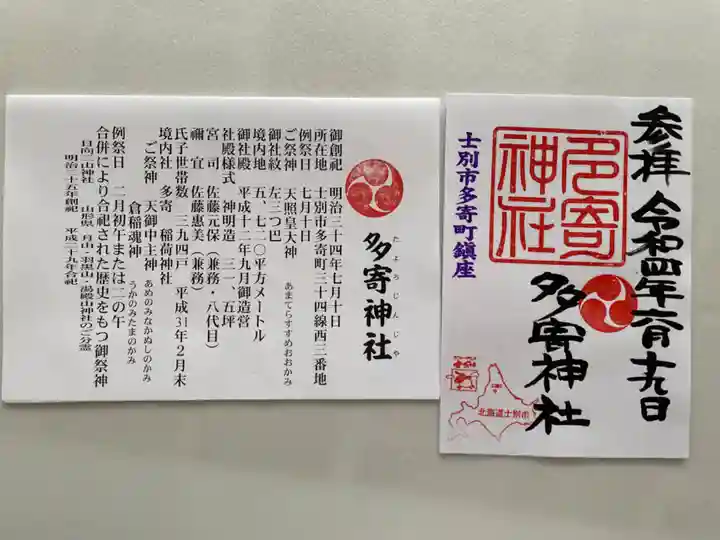 多寄神社
たよろじんじゃ
御創祀 明治三十四年七月十日
所在地 士別市多寄町三十四線西三番地
例祭日 七月十日
ご祭神 天照皇大神
あまてらすすめおおかみ
御社紋 左三つ巴
境内地 五、七二〇平方メートル
御社殿 平成十二年九月御造営
社殿様式 神明造 三一、五坪
宮司 佐藤元保(兼務・八代目)
禰宜 佐藤惠美(兼務)
氏子世帯数 三九四戸 平成31年2月末
境内社 多寄 稲荷神社
ご祭神 天御中主神
あめのみなかぬしのかみ
倉稲魂神
うかのみたまのかみ
例祭日 二月初午または二の午
合併により合祀された歴史をもつ御祭神
日向三山神社 山形県 月山・羽黒山・湯殿山神社のご分霊
明治三十五年創祀 平成二十九年合祀
参拝 令和四年六月十九日
多寄神社
多寄神社
士別市多寄町鎮座
北海道士別市